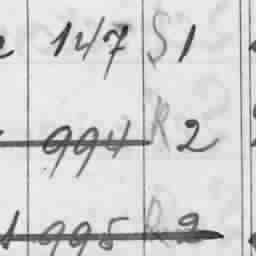 147 S1
994 R2
995 R2